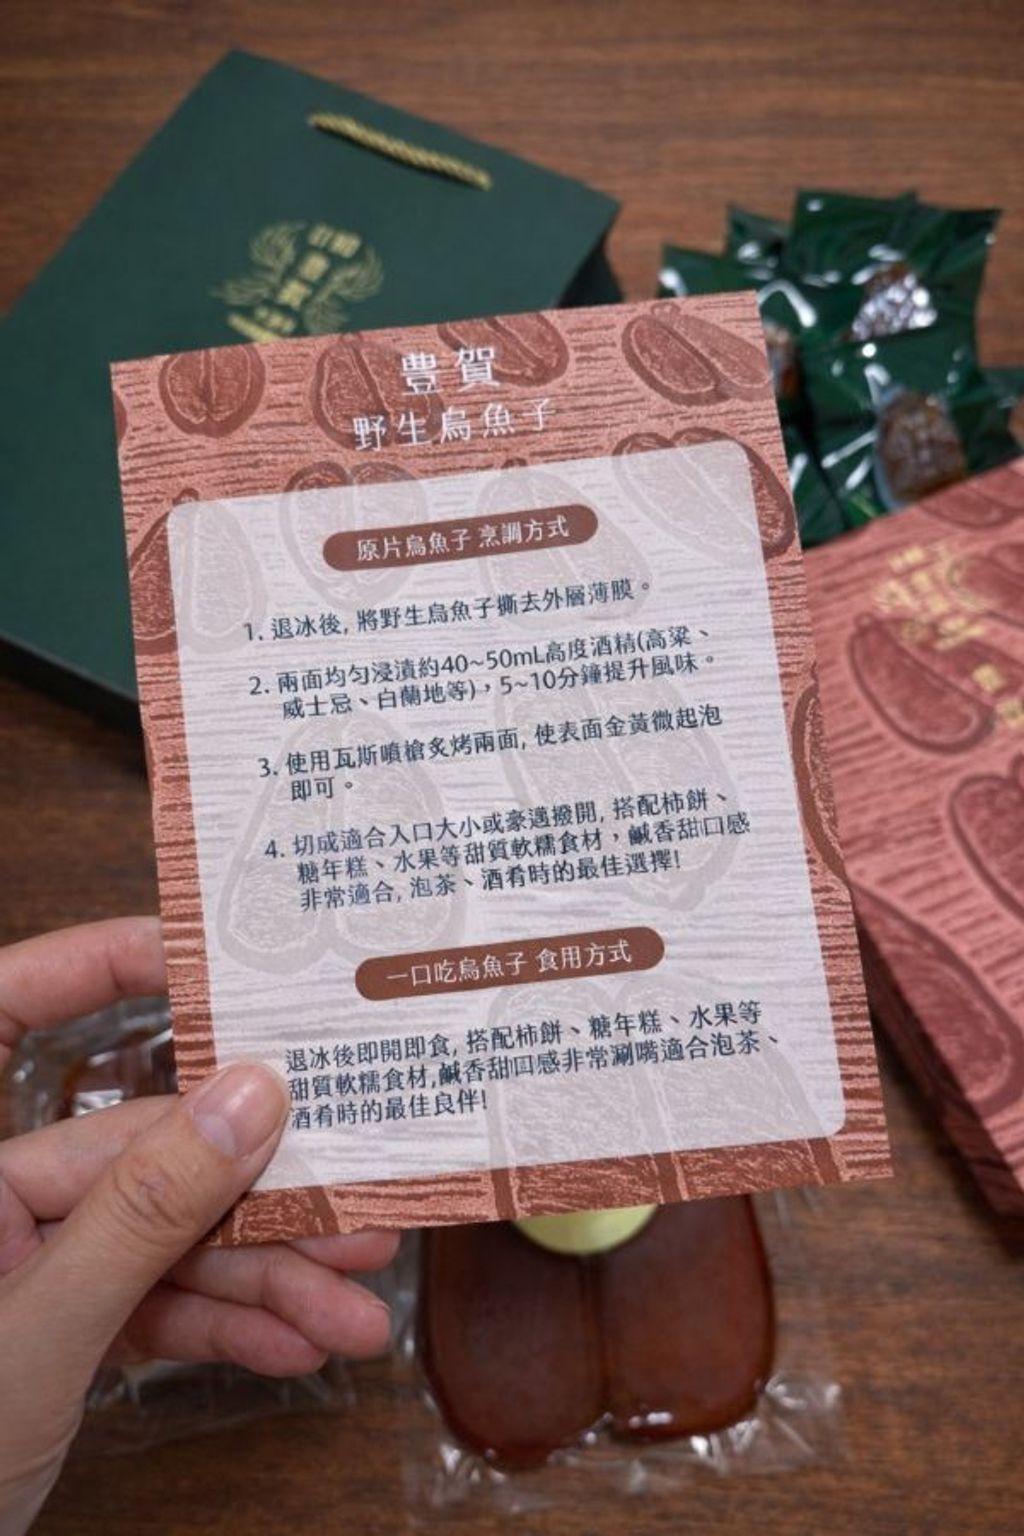 豐賀
野生烏魚子
原片烏魚子 烹調方式
1. 退冰後, 將野生烏魚子撕去外層薄膜。
2. 兩面均勻浸漬約40~50mL高度酒精(高粱、
威士忌、白蘭地等)，5~10分鐘提升風味。
3. 使用瓦斯噴槍炙烤兩面, 使表面金黃微起泡
即可。
4. 切成適合入口大小或豪邁撥開, 搭配柿餅、
糖年糕、水果等甜質軟糯食材，鹹香甜口感
非常適合, 泡茶、酒肴時的最佳選擇!
一口吃烏魚子 食用方式
退冰後即開即食, 搭配柿餅、糖年糕、水果等
甜質軟糯食材,鹹香甜口感非常涮嘴適合泡茶、
酒肴時的最佳良伴!